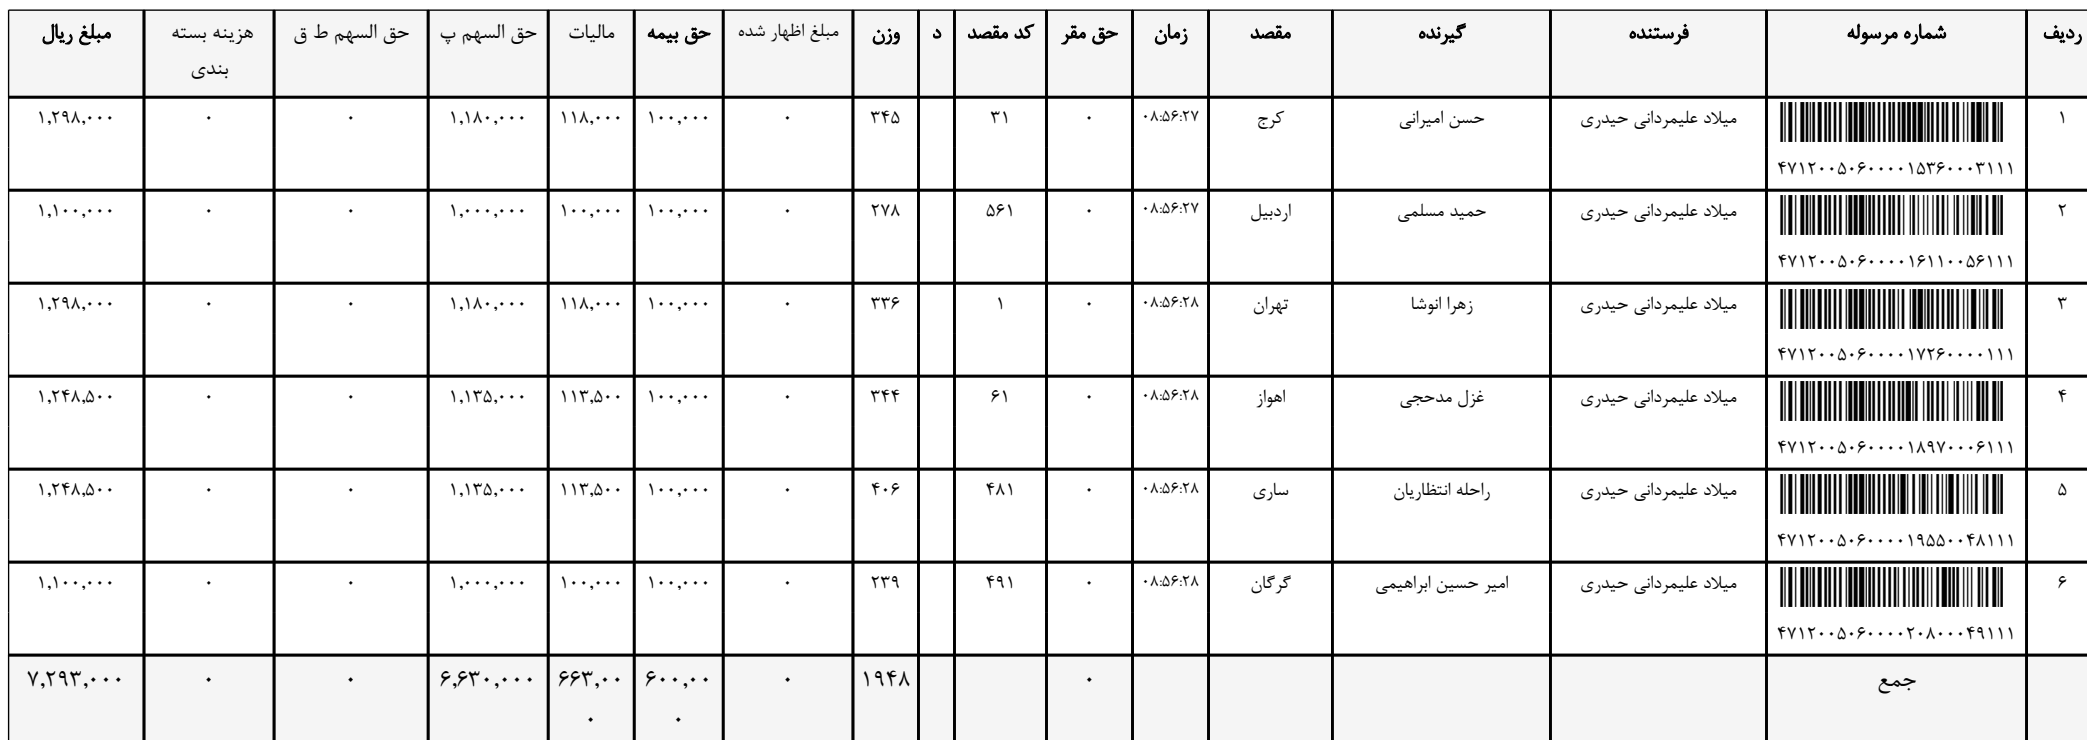 ردیف شماره مرسوله فرستنده گیرنده مقصد زمان حق مقر کد مقصد د وزن مبلغ اظهار شده حق بیمه مالیات حق السهم پ حق السهم ط ق هزینه بسته مبلغ ریال
بندی
۱ میلاد علیمردانی حیدری حسن امیرانی کرج ۰۸:۵۶:۲۷ ۰ ۳۱ ۳۴۵ ۰ ۱۰۰,۰۰۰ ۱۱۸,۰۰۰ ۱,۱۸۰,۰۰۰ ۰ ۰ ۱,۲۹۸,۰۰۰
۴۷۱۲۰۰۵۰۶۰۰۰۰۱۵۳۶۰۰۰۳۱۱۱
۲ میلاد علیمردانی حیدری حمید مسلمی اردبیل ۰۸:۵۶:۲۷ ۰ ۵۶۱ ۲۷۸ ۰ ۱۰۰,۰۰۰ ۱۰۰,۰۰۰ ۱,۰۰۰,۰۰۰ ۰ ۰ ۱,۱۰۰,۰۰۰
۴۷۱۲۰۰۵۰۶۰۰۰۰۱۶۱۱۰۰۵۶۱۱۱
۳ میلاد علیمردانی حیدری زهرا انوشا تهران ۰۸:۵۶:۲۸ ۰ ۱ ۳۳۶ ۰ ۱۰۰,۰۰۰ ۱۱۸,۰۰۰ ۱,۱۸۰,۰۰۰ ۰ ۰ ۱,۲۹۸,۰۰۰
۴۷۱۲۰۰۵۰۶۰۰۰۰۱۷۲۶۰۰۰۰۱۱۱
۴ میلاد علیمردانی حیدری غزل مدحجی اهواز ۰۸:۵۶:۲۸ ۰ ۶۱ ۳۴۴ ۰ ۱۰۰,۰۰۰ ۱۱۳,۵۰۰ ۱,۱۳۵,۰۰۰ ۰ ۰ ۱,۲۴۸,۵۰۰
۴۷۱۲۰۰۵۰۶۰۰۰۰۱۸۹۷۰۰۰۶۱۱۱
۵ میلاد علیمردانی حیدری راحله انتظاریان ساری ۰۸:۵۶:۲۸ ۰ ۴۸۱ ۴۰۶ ۰ ۱۰۰,۰۰۰ ۱۱۳,۵۰۰ ۱,۱۳۵,۰۰۰ ۰ ۰ ۱,۲۴۸,۵۰۰
۴۷۱۲۰۰۵۰۶۰۰۰۰۱۹۵۵۰۰۴۸۱۱۱
۶ میلاد علیمردانی حیدری امیر حسین ابراهیمی گرگان ۰۸:۵۶:۲۸ ۰ ۴۹۱ ۲۳۹ ۰ ۱۰۰,۰۰۰ ۱۰۰,۰۰۰ ۱,۰۰۰,۰۰۰ ۰ ۰ ۱,۱۰۰,۰۰۰
۴۷۱۲۰۰۵۰۶۰۰۰۰۲۰۸۰۰۰۴۹۱۱۱
جمع ۰ ۱۹۴۸ ۰ ۶۰۰,۰۰ ۶۶۳,۰۰ ۶,۶۳۰,۰۰۰ ۰ ۰ ۷,۲۹۳,۰۰۰
۰ ۰